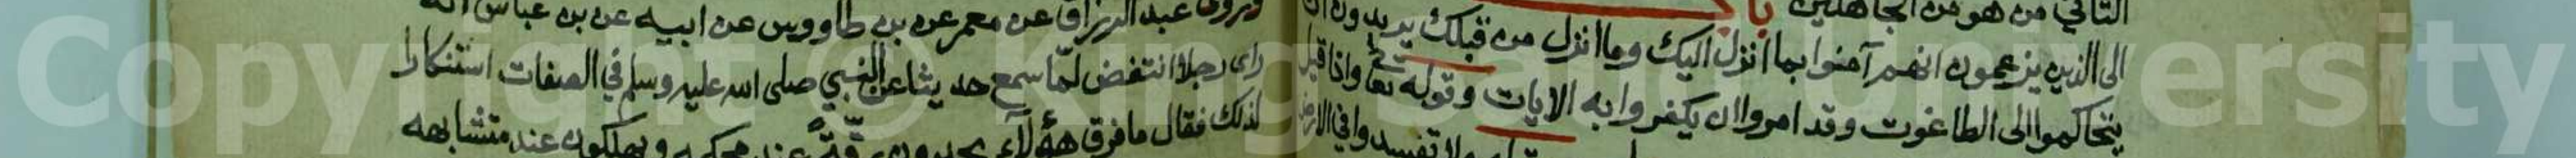 الثاني من هو من الجاهلين باب
الى الذين يزعمون انهم آمنوا بما انزل اليك وما انزل من قبلك يريدون ان
يتحاكموا الى الطاغوت وقد امروا ان يكفروا به الايات وقوله تعا واذا قيل
ولا تفسدوا في الارض
وروى عبد الرزاق عن معمر عن بن طاووس عن ابيه عن بن عباس انه
راى رجلا انتفض لما سمع حديثا عن النبي صلى الله عليه وسلم في الصفات استنكارا
لذلك فقال ما فرق هؤلآء يجدون رقة عند محكمه ويهلكون عند متشابهه
Copyright © King Saud University